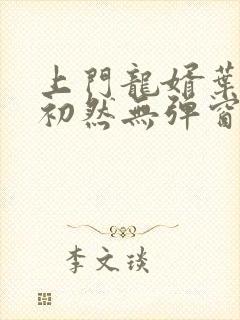 上門龍婿葉
初然無彈窗
李文琰